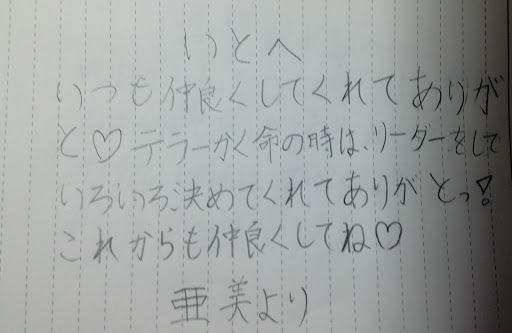 いとへ
いつも仲良くしてくれてありが
と♡テラーかく命の時は、リーダーをして
いろいろ決めてくれてありがとっ!
これからも仲良くしてね♡
亜美より